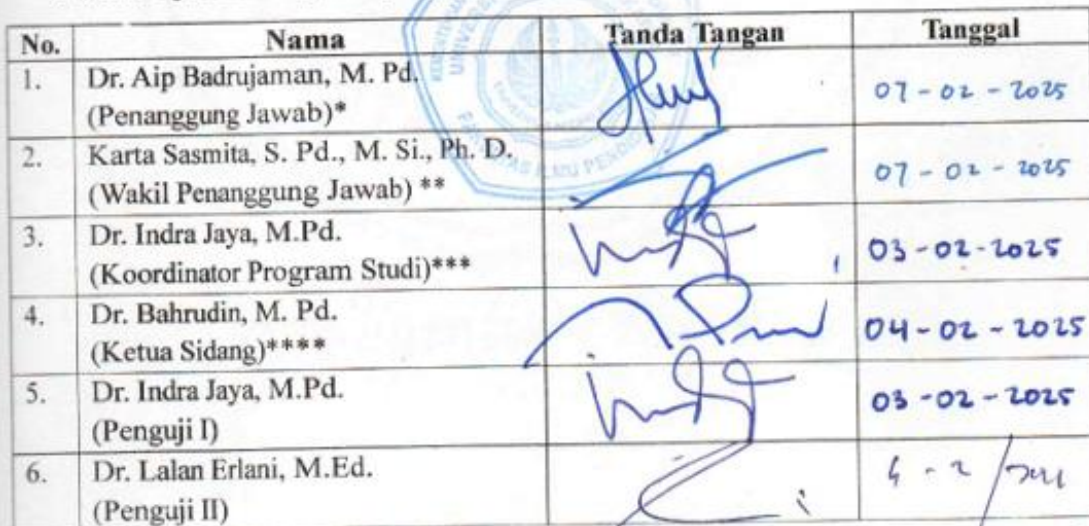 No. Nama Tanda Tangan Tanggal
1. Dr. Aip Badrujaman, M. Pd.
(Penanggung Jawab)* 07-02-2025
2. Karta Sasmita, S. Pd., M. Si., Ph. D.
(Wakil Penanggung Jawab) ** 07-02-2025
3. Dr. Indra Jaya, M.Pd.
(Koordinator Program Studi)*** 03-02-2025
4. Dr. Bahrudin, M. Pd.
(Ketua Sidang)**** 04-02-2025
5. Dr. Indra Jaya, M.Pd.
(Penguji I) 03-02-2025
6. Dr. Lalan Erlani, M.Ed.
(Penguji II)